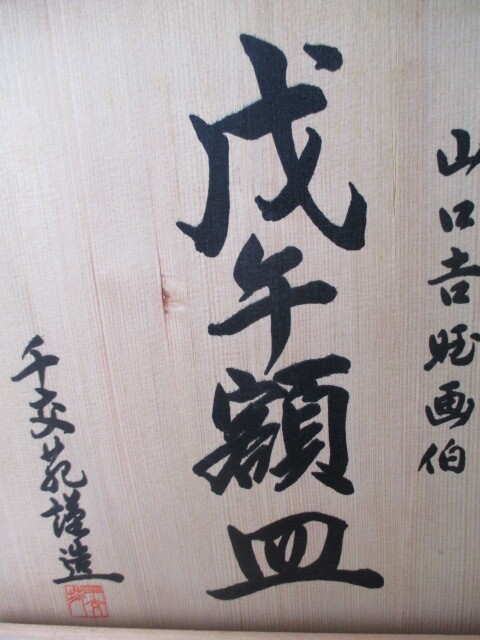 山口吉旺画伯
戊午額皿
千交苑謹造